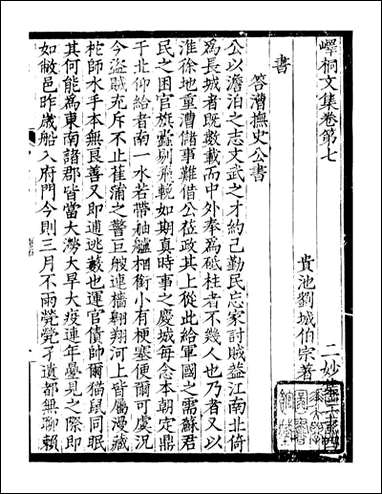 嶧桐文集卷第七
貴池劉城伯宗著
書
答漕撫史公書
公以澹泊之志文武之才約己勤民忘家討賊葢江南北倚
為長城者既數載而中外奉為砥柱者不幾人也乃者又以
淮徐地重漕儲事難借公莅政其上從此給軍國之需蘇君
民之困官旗蠧剔飛輓如期真時事之慶城每念本朝定鼎
于北仰給者南一水若帶舳艫相銜小有梗塞便爾可虞況
今盜賊充斥不止萑蒲之警巨艘連檣翱翔河上皆屬漫藏
柁師水手本無良善又即逋逃藪也運官債帥爾猫鼠同眠
其何能為東南諸郡皆當大澇大旱大疫連年憂見之際即
如敝邑昨歲船入府門今則三月不雨煢煢孑遺都無聊賴
二妙